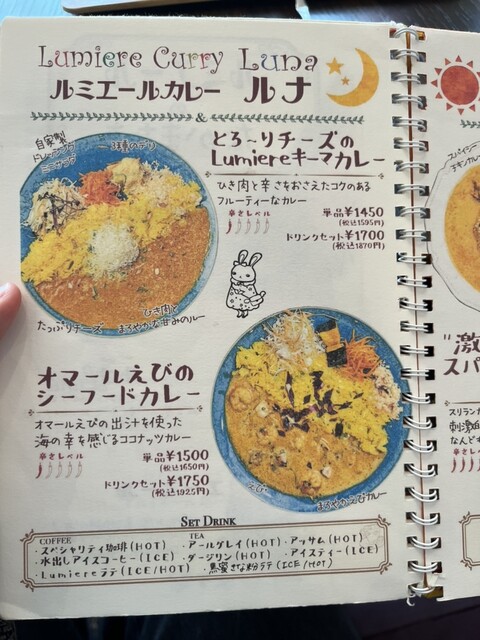 Lumiere Curry Luna
ルミエールカレー ルナ
&
とろ〜りチーズの
Lumiereキーマカレー
自家製
ドレッシング
ひき肉と辛さをおさえたコクのある
フルーティーなカレー
辛さレベル
単品¥1450
(税込1595円)
ドリンクセット¥1700
(税込1870円)
たっぷりチーズ
ひき肉と
まろやかな甘みのルー
オマールえびの
シーフードカレー
オマールえびの出汁を使った
海の幸を感じるココナッツカレー
辛さレベル
単品¥1500
(税込1650円)
ドリンクセット¥1750
(税込1925円)
えび
まろやかえびカレー
SET DRINK
COFFEE
・スペシャリティ珈琲(HOT)
・水出しアイスコーヒー(ICE)
・Lumiereラテ(ICE/HOT)
TEA
・アールグレイ(HOT)
・アッサム(HOT)
・ダージリン(HOT)
・アイスティー(ICE)
・黒蜜きな粉ラテ(ICE/HOT)
スパイシー
チキンカレー
"激
スパ
スリランカ
刺激
なんども
辛さレベル